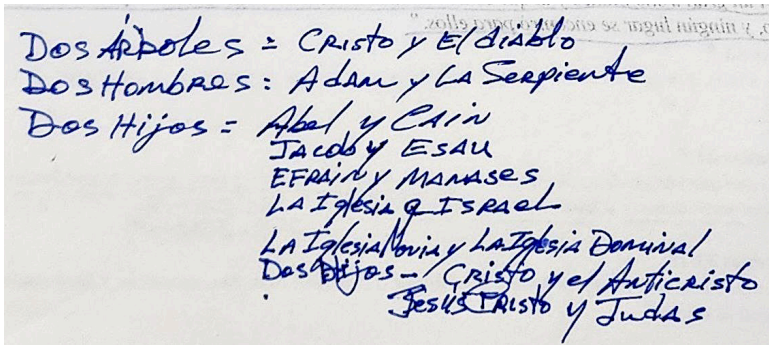 Dos Árboles = Cristo y El diablo
Dos Hombres: Adam y La Serpiente
Dos Hijos = Abel y Cain
Jacob y Esau
Efrain y Manases
La Iglesia e Israel
La Iglesia Novia y La Iglesia
Dos Hijos - Cristo y el Anticristo
Jesus Cristo y Judas